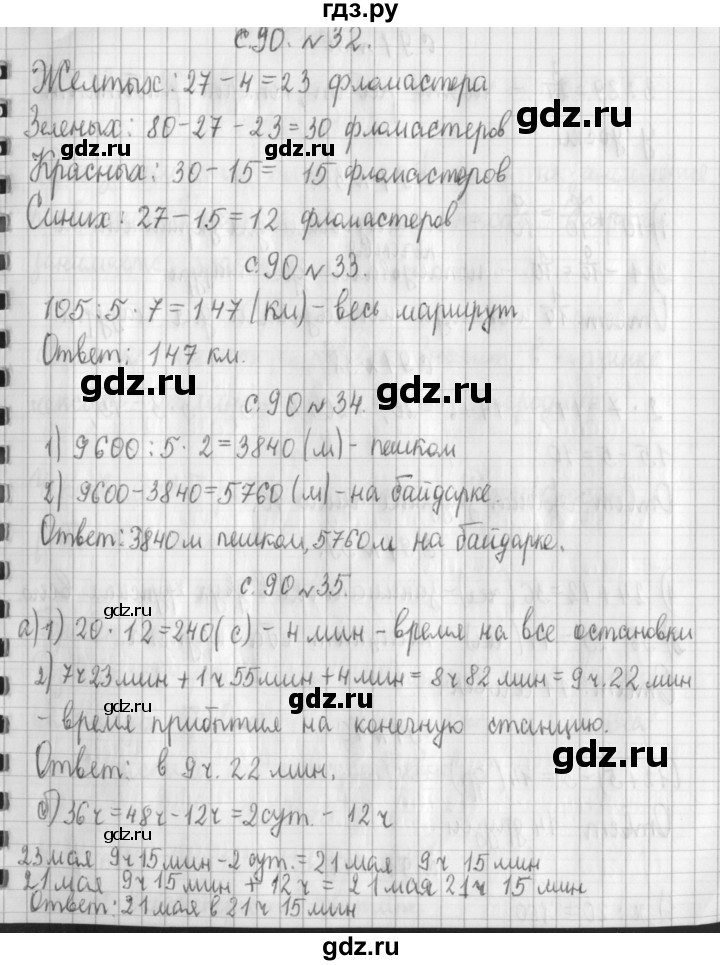 гдз.ру
с.90. №32.
Желтых: 27-4=23 фломастера
Зеленых: 80-27-23=30 фломастеров
gdz.ru gdz.ru
Красных: 30-15= 15 фломастеров
Синих: 27-15=12 фломастеров
с.90 №33.
105:5·7=147 (км)-весь маршрут
Ответ: 147 км.
gdz.ru gdz.ru
с.90 №34.
1) 9600:5·2=3840 (м)- пешком
2) 9600-3840=5760 (м)-на байдарке.
Ответ: 3840м пешком, 5760м на байдарке.
с.90 №35.
gdz.ru
а) 1) 20·12=240(с) - 4 мин - время на все остановки
2) 7ч 23мин + 1ч 55мин + 4мин = 8ч 82 мин = 9ч. 22 мин
gdz.ru
- время прибытия на конечную станцию.
gdz.ru
Ответ: в 9ч. 22 мин.
б) 36ч=48ч-12ч=2сут. - 12ч
gdz.ru
23мая 9ч15мин-2 сут.=21мая 9ч 15мин
21мая 9ч15мин + 12ч = 21мая 21ч 15мин
Ответ: 21мая в 21ч 15мин
gdz.ru
gdz.ru